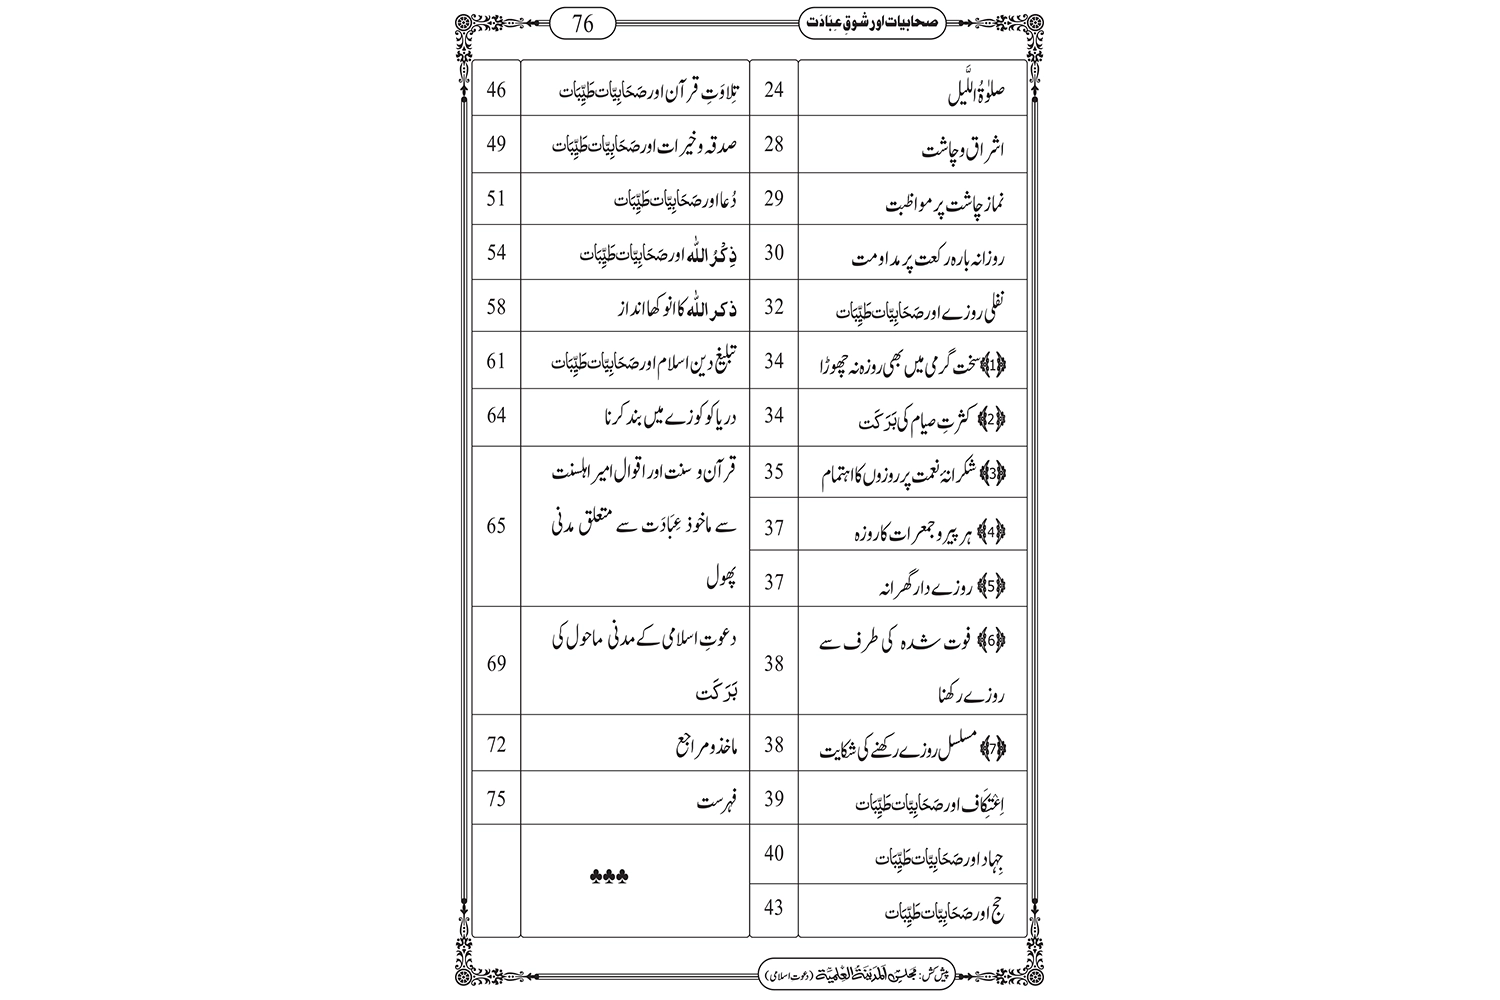 صحابیات اور شوقِ عِبَادَت
76
صلوٰۃُ اللَّیل 24
اشراق و چاشت 28
نماز چاشت پر مواظبت 29
روزانہ بارہ رکعت پر مداومت 30
نفلی روزے اور صَحَابِیَّات طَیِّبَات 32
﴿1﴾ سخت گرمی میں بھی روزہ نہ چھوڑا 34
﴿2﴾ کثرتِ صیام کی بَرَکَت 34
﴿3﴾ شکرانۂ نعمت پر روزوں کا اہتمام 35
﴿4﴾ ہر پیر و جمعرات کا روزہ 37
﴿5﴾ روزے دار گھرانہ 37
﴿6﴾ فوت شدہ کی طرف سے
روزے رکھنا 38
﴿7﴾ مسلسل روزے رکھنے کی شکایت 38
اِعْتِکَاف اور صَحَابِیَّات طَیِّبَات 39
جِہاد اور صَحَابِیَّات طَیِّبَات 40
حج اور صَحَابِیَّات طَیِّبَات 43
تِلاوَتِ قرآن اور صَحَابِیَّات طَیِّبَات 46
صدقہ و خیرات اور صَحَابِیَّات طَیِّبَات 49
دُعا اور صَحَابِیَّات طَیِّبَات 51
ذِکْرُ اللّٰہ اور صَحَابِیَّات طَیِّبَات 54
ذکر اللّٰہ کا انوکھا انداز 58
تبلیغ دین اسلام اور صَحَابِیَّات طَیِّبَات 61
دریا کو کوزے میں بند کرنا 64
قرآن و سنت اور اقوال امیر اہلسنت
سے ماخوذ عِبَادَت سے متعلق مدنی 65
پھول
دعوتِ اسلامی کے مدنی ماحول کی
بَرَکَت 69
ماخذ و مراجع 72
فہرست 75
پیش کش: مجلس المدینۃ العلمیۃ (دعوت اسلامی)